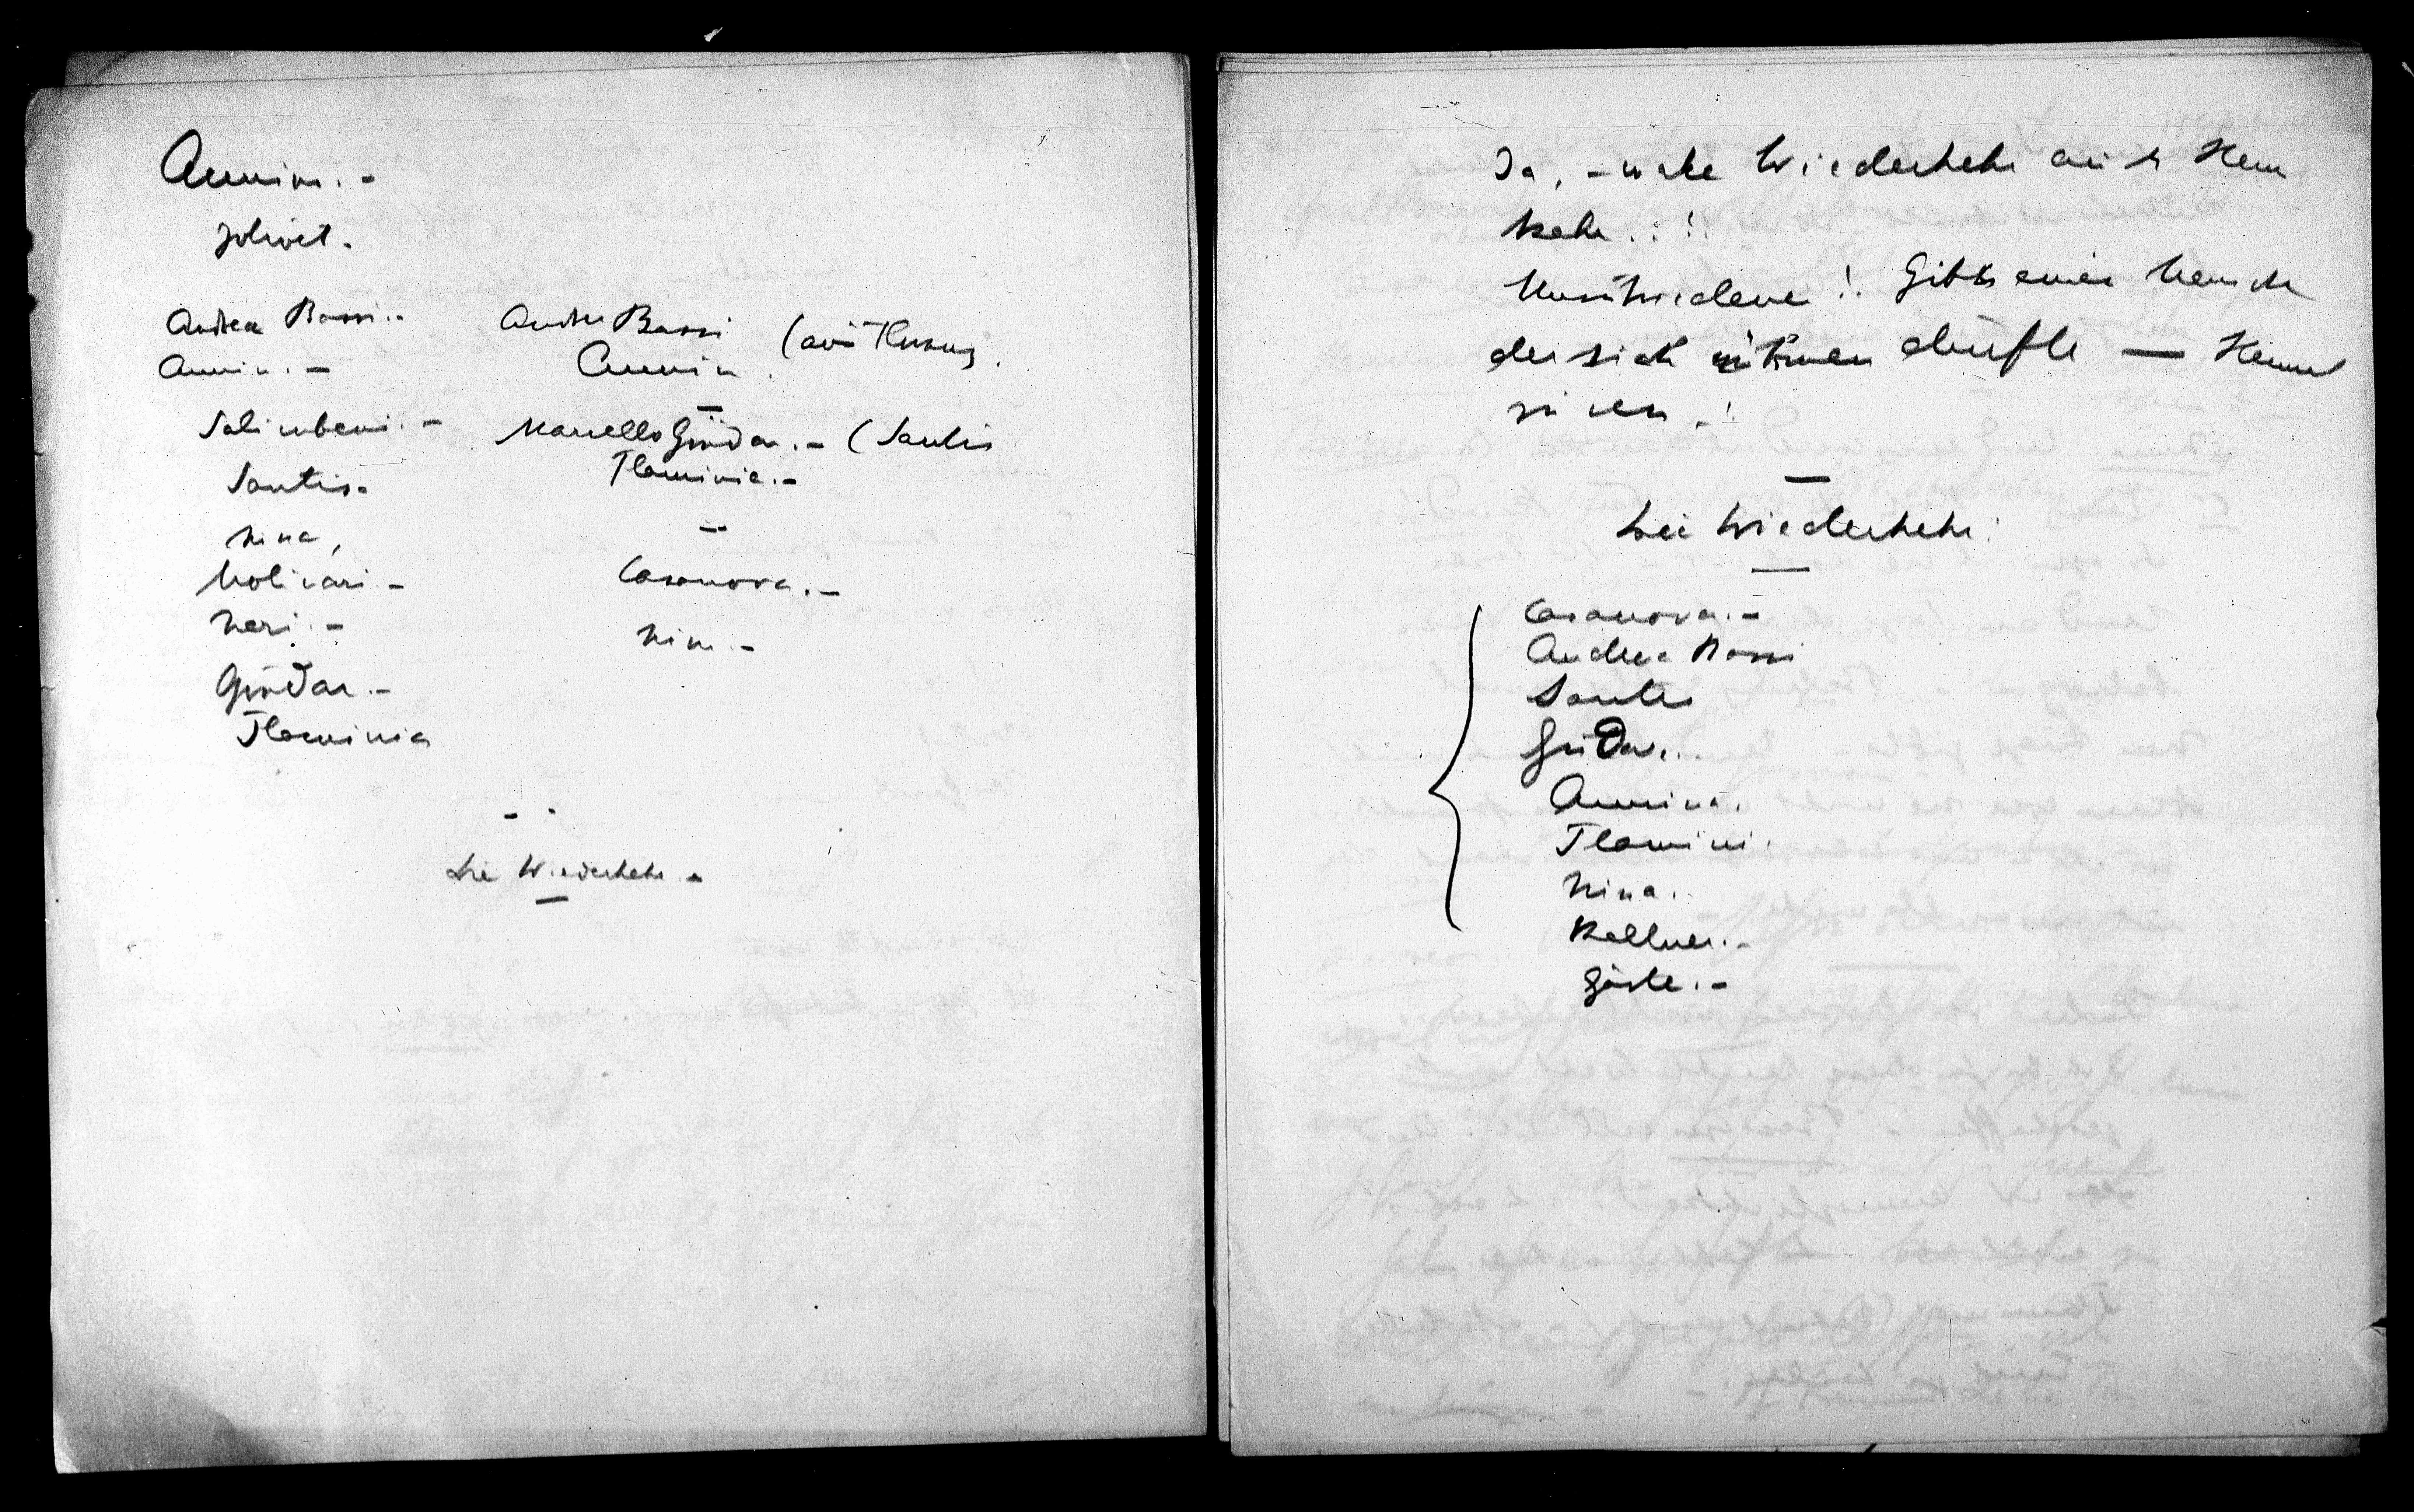 Annina. -
Jolivet.
Andrea Bassi. -
Annina. -
Salimbeni. -
Santis.
Nina,
Molinari. -
Neri. -
Gudar. -
Flaminia
Andrea Bassi
Annina.
Marcello Gudar. - (Santis
Flaminia. -
Casanova. -
Nina. -
Die Wiederkehr. -
Ja, - wäre Wiederkehr auch Heim
kehr..!!
Gibts einen Menschen
der sich rühmen dürfte —
Die Wiederkehr.
Casanova. -
Andrea Bassi
Santis
Gudar..
Annina.
Flamini.
Nina.
Kellner. -
Gäste. -